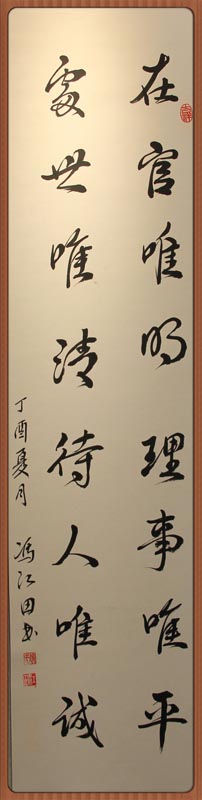 在官唯明理事唯平
處世唯清待人唯誠
丁酉夏月
馮江田书